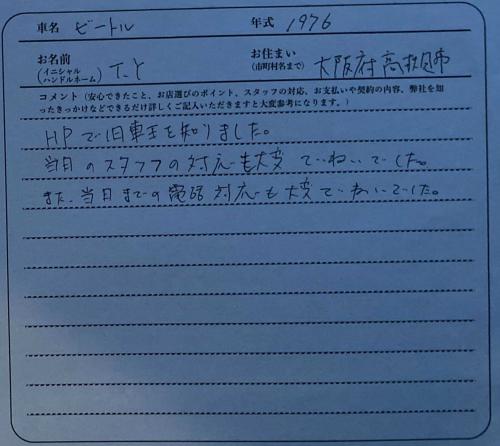 車名 ビートル 年式 1976
お名前 (イニシャル ハンドルネーム) T.Y お住まい (市町村名まで) 大阪府高槻市
コメント (安心できたこと、お店選びのポイント、スタッフの対応、お支払いや契約の内容、弊社を知
ったきっかけなどできるだけ詳しくご記入いただきますと大変参考になります。)
HPで旧車王を知りました。
当日のスタッフの対応も大変ていねいでした。
また、当日までの電話対応も大変ていねいでした。